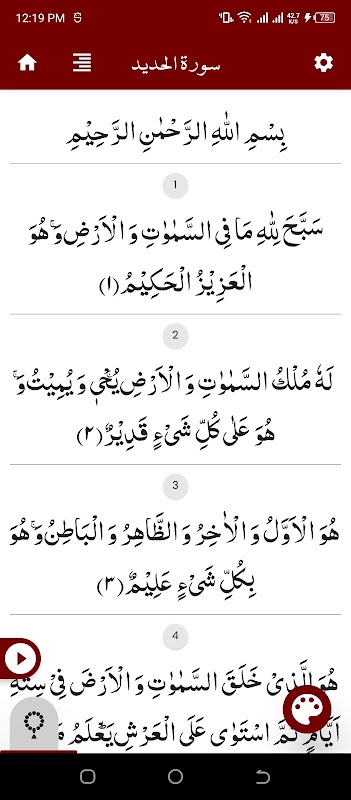 12:19 PM 42.7 K/S 75
سورة الحديد
بِسْمِ اللّٰهِ الرَّحْمٰنِ الرَّحِيْمِ
1
سَبَّحَ لِلّٰهِ مَا فِى السَّمٰوٰتِ وَ الْاَرْضِ‌ۚ وَ هُوَ
الْعَزِيْزُ الْحَكِيْمُ(۱)
2
لَهٗ مُلْكُ السَّمٰوٰتِ وَ الْاَرْضِ‌ۚ يُحْیٖ وَ يُمِيْتُ‌ۚ وَ
هُوَ عَلٰى كُلِّ شَیْءٍ قَدِيْرٌ(۲)
3
هُوَ الْاَوَّلُ وَ الْاٰخِرُ وَ الظَّاهِرُ وَ الْبَاطِنُ‌ۚ وَ هُوَ
بِكُلِّ شَیْءٍ عَلِيْمٌ(۳)
4
هُوَ الَّذِیْ خَلَقَ السَّمٰوٰتِ وَ الْاَرْضَ فِیْ سِتَّةِ
اَيَّامٍ ثُمَّ اسْتَوٰى عَلَى الْعَرْشِ‌ؕ يَعْلَمُ